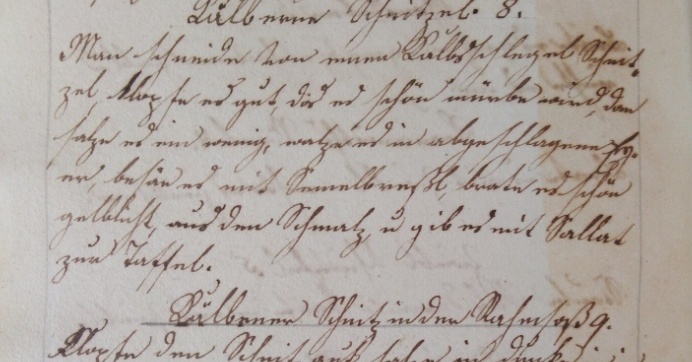 Kälberne Schnitzel. 8.
Man schneide von einen Kalbsschlegel Schnit-
zel, klopfe es gut, das es schön mürbe wird, dan
salze es ein wenig, walze es in abgeschlagene Ey-
er, besäe es mit Semelbresl, brate es schön
gelblicht, aus den Schmalz, u gib es mit Sallat
zur Taffel.
Kälberner Schnitz in der Rahmsoß 9.
Klopfe den Schnitz aus, salze in, druck